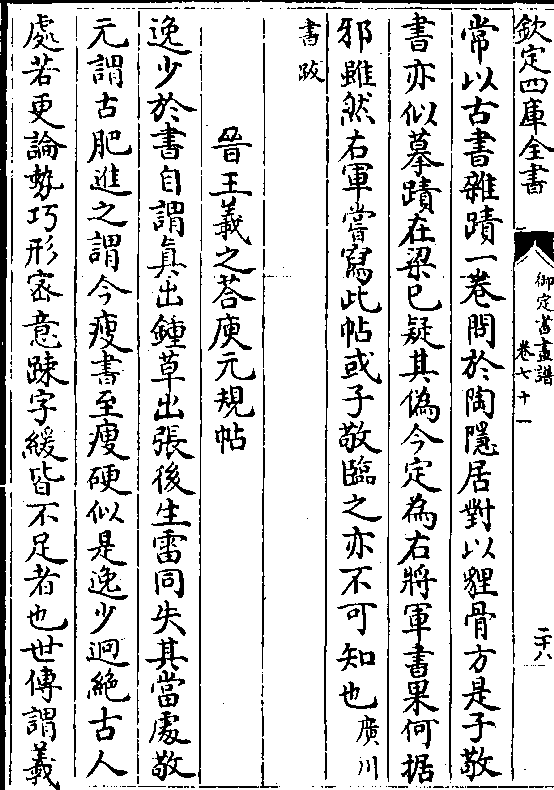 欽定四庫全書
御定書畫譜
卷七十一
二十八
常以古書雜蹟一卷問於陶隱居對以貍骨方是子敬
書亦似摹蹟在梁已疑其偽今定為右將軍書果何据
邪雖然右軍嘗寫此帖或子敬臨之亦不可知也廣川
書跋
晉王羲之荅庾元規帖
逸少於書自謂真出鍾草出張後生雷同失其當處敬
元謂古肥進之謂今瘦書至瘦硬似是逸少迥絶古人
處若更論勢巧形宻意踈字緩皆不足者也世傳謂羲